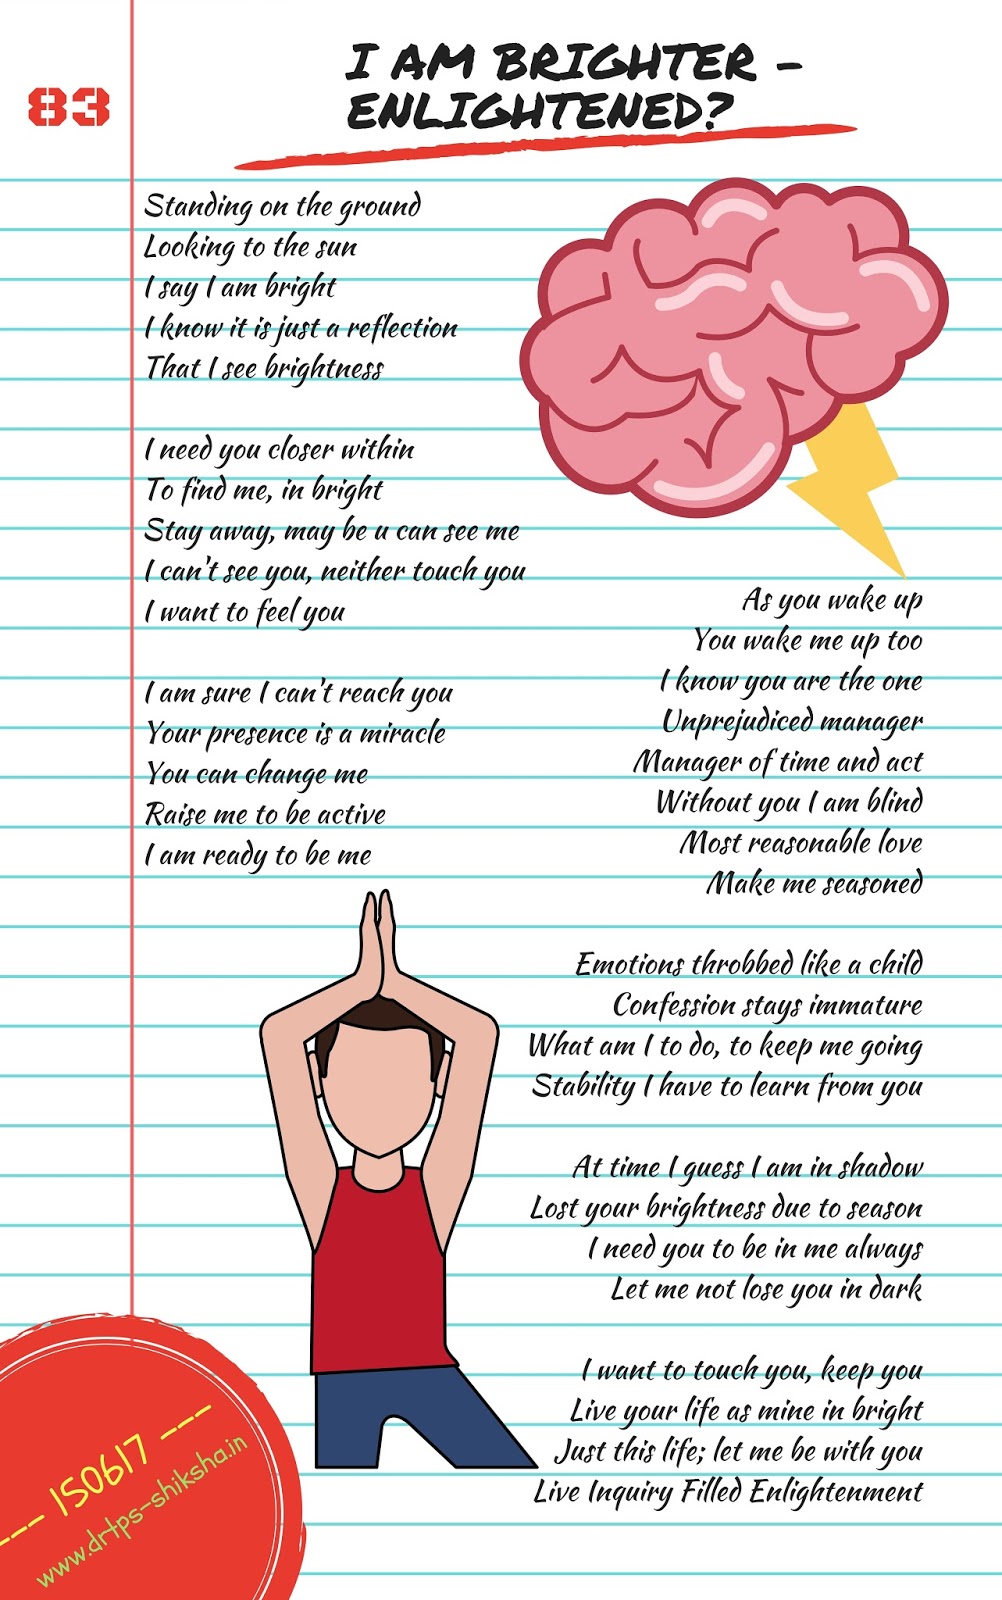 83
I AM BRIGHTER -
ENLIGHTENED?
Standing on the ground
Looking to the sun
I say I am bright
I know it is just a reflection
That I see brightness
I need you closer within
To find me, in bright
Stay away, may be u can see me
I can't see you, neither touch you
I want to feel you
I am sure I can't reach you
Your presence is a miracle
You can change me
Raise me to be active
I am ready to be me
As you wake up
You wake me up too
I know you are the one
Unprejudiced manager
Manager of time and act
Without you I am blind
Most reasonable love
Make me seasoned
Emotions throbbed like a child
Confession stays immature
What am I to do, to keep me going
Stability I have to learn from you
At time I guess I am in shadow
Lost your brightness due to season
I need you to be in me always
Let me not lose you in dark
I want to touch you, keep you
Live your life as mine in bright
Just this life; let me be with you
Live Inquiry Filled Enlightenment
--- 150617 ---
www.drtps-shiksha.in